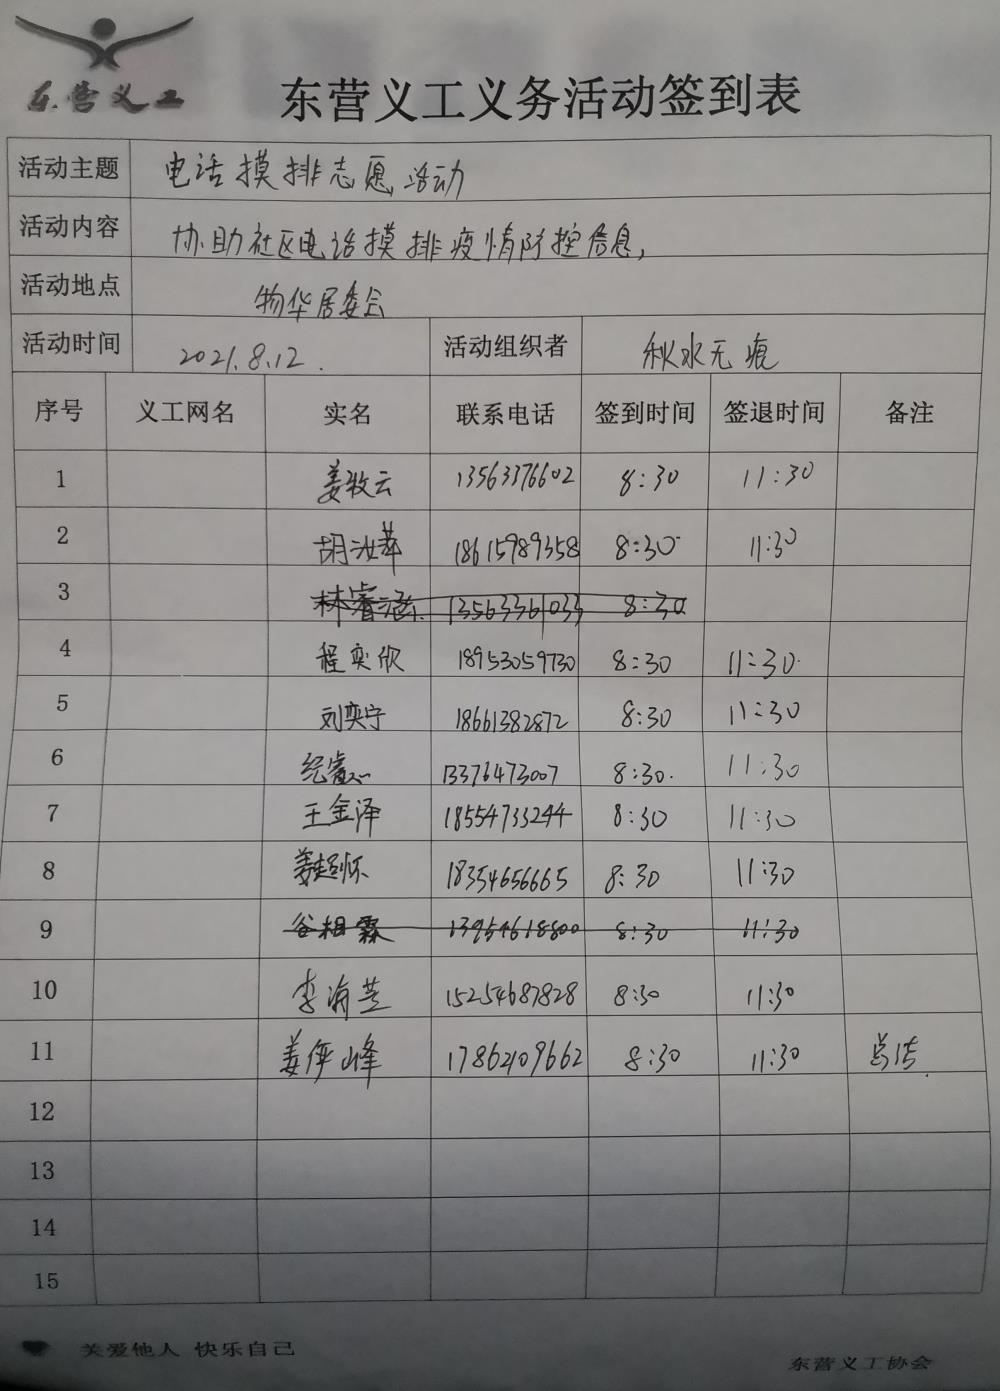 东营义工
东营义工义务活动签到表
活动主题 电话摸排志愿活动
活动内容 协助社区电话摸排疫情防控信息,
活动地点 物华居委会
活动时间 2021.8.12. 活动组织者 秋水无痕
序号 义工网名 实名 联系电话 签到时间 签退时间 备注
1 姜牧云 13563376602 8:30 11:30
2 胡汝苹 18615989358 8:30 11:30
3 林睿涵 13563361033 8:30
4 程奕欣 18953059730 8:30 11:30
5 刘奕宁 18661382872 8:30 11:30
6 纪睿心 13376473007 8:30 11:30
7 王金泽 18554733244 8:30 11:30
8 姜超怀 18354656665 8:30 11:30
9 谷相霖 13954618800 8:30 11:30
10 李 15254687828 8:30 11:30
11 姜伊峰 17862109662 8:30 11:30 总结
12
13
14
15
关爱他人 快乐自己
东营义工协会